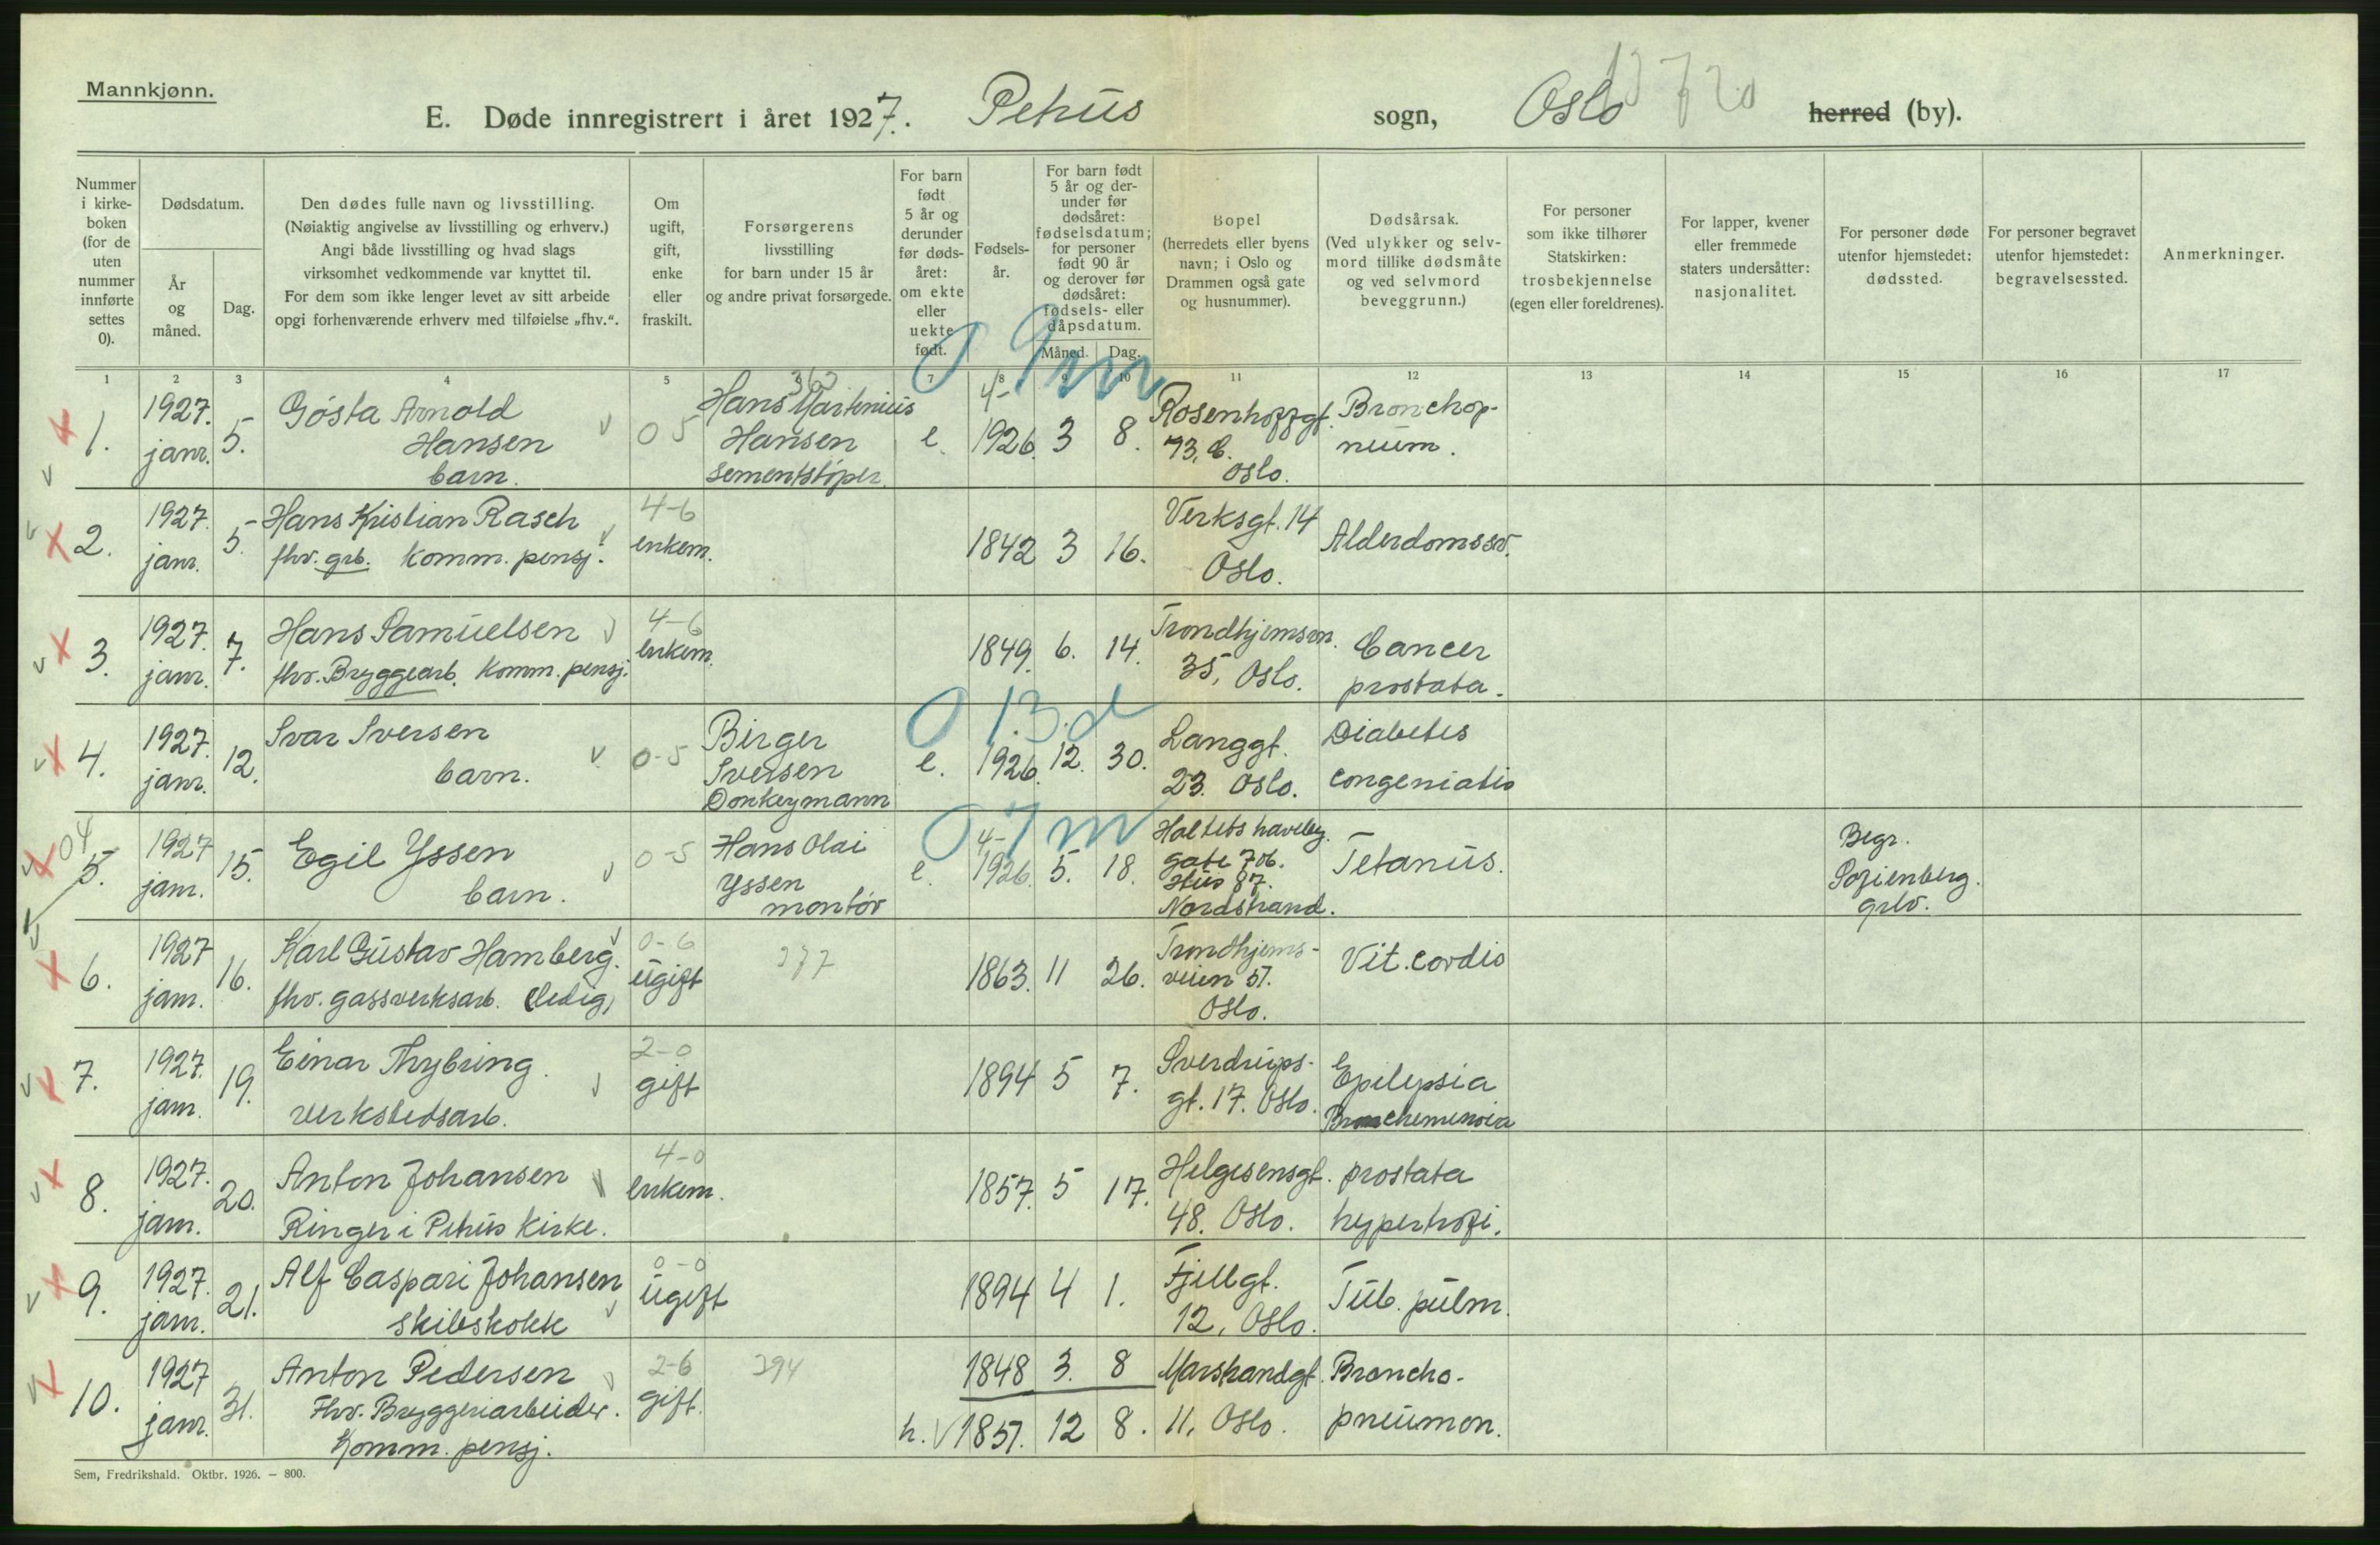 Mannkjønn.
E. Døde innregistrert i året 1927. Petrus sogn, Oslo herred (by).
Nummer i kirkeboken (for de uten nummer innførte settes 0).
Dødsdatum.
År og måned.
Dag.
Den dødes fulle navn og livsstilling.
(Nøiaktig angivelse av livsstilling og erhverv.)
Angi både livsstilling og hvad slags
virksomhet vedkommende var knyttet til.
For dem som ikke lenger levet av sitt arbeide
opgi forhenværende erhverv med tilføielse „fhv.“.
Om ugift, gift, enke eller fraskilt.
Forsørgerens
livsstilling
for barn under 15 år
og andre privat forsørgede.
For barn født 5 år og derunder før dødsåret: om ekte eller uekte født.
Fødselsår.
For barn født 5 år og derunder før dødsåret: fødselsdatum; for personer født 90 år og derover før dødsåret: fødsels- eller dåpsdatum.
Måned. Dag.
Bopel
(herredets eller byens
navn; i Oslo og
Drammen også gate
og husnummer).
Dødsårsak.
(Ved ulykker og selv-
mord tillike dødsmåte
og ved selvmord
beveggrunn.)
For personer
som ikke tilhører
Statskirken:
trosbekjennelse
(egen eller foreldrenes).
For lapper, kvener
eller fremmede
staters undersåtter:
nasjonalitet.
For personer døde
utenfor hjemstedet:
dødssted.
For personer begravet
utenfor hjemstedet:
begravelsessted.
Anmerkninger.
1 2 3 4 5 6 7 8 9 10 11 12 13 14 15 16 17
1. 1927. janr. 5. Gósta Arnold Hansen barn. 0 5 Hans Martinius Hansen sementstøper. e. 4- 1926. 3 8. Rosenhoffgt. 73, C. Oslo. Bronchopneum.
0 9 m
2. 1927. janr. 5. Hans Kristian Rasch fhv. grb. Komm. pensj. 4-6 enkem. 1842 3 16. Verksgt. 14 Oslo. Alderdomssv.
3. 1927. janr. 7. Hans Samuelsen fhv. Bryggearb. Komm. pensj. 4-6 enkem. 1849. 6. 14. Trondhjemsvn. 35, Oslo. Cancer prostata.
4. 1927. janr. 12. Ivar Iversen barn. 0-5 Birger Iversen Donkeymann e. 1926. 12. 30. Langgt. 23. Oslo. Diabetes congeniatis
0 13 d
04 5. 1927 jam. 15. Egil Yssen barn. 0-5 Hans Olai Yssen montör e. 4- 1926. 5. 18. Holtets haveby. gate 706. Hus 87. Nordstrand. Tetanus. Begr. Sofienberg. grlv.
0 7 m
6. 1927 jam. 16. Karl Gustav Hamberg. fhv. gassverksarb. (ledig) 0-6 ugift 277 1863. 11 26. Trondhjems- veien 51. Oslo. Vit. cordis
7. 1927. jam. 19. Einar Thybring. verkstedsarb. 2-0 gift 1894 5 7. Sverdrups- gt. 17. Oslo. Epilepsia
8. 1927. jam. 20. Anton Johansen Ringer i Petrus kirke. 4-0 enkem. 1857. 5 17. Helgesensgt. 48. Oslo. prostata hypertrofi.
9. 1927. janr. 21. Alf Caspari Johansen skibskokk 0-0 ugift 1894 4 1. Fjellgt. 12, Oslo. Tub. pulm.
10. 1927 janr. 31. Anton Pedersen Fhv. Bryggeriarbeider. Komm. pensj. 2-6 gift. 294 1848 3. 8 h. 1851. 12 8. Marstrandgt. 11, Oslo. Broncho- pneumon.
Sem, Fredrikshald. Oktbr. 1926. — 800.